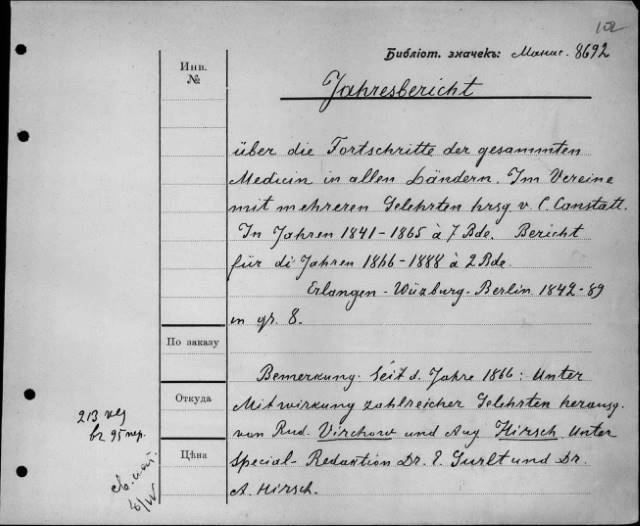 102
Библіот. значекъ: Манас. 8692
Инв.
№
Jahresbericht
über die Fortschritte der gesammten
Medicin in allen Ländern. Im Vereine
mit mehreren Gelehrten hrsg. v. C. Canstatt.
In Jahren 1841-1865 à 7 Bde. Bericht
für di Jahren 1866-1888 à 2 Bde.
Erlangen-Wüzburg-Berlin 1842-89
in gr. 8.
По заказу
Bemerkung. Seit d. Jahre 1866: Unter
Откуда
Mitwirkung zahlreicher Gelehrten herausg.
von Rud. Virchow und Aug Hirsch. Unter
Цѣна
Special-Redaction Dr. E. Gurlt und Dr.
A. Hirsch.
213
въ 95 пер.